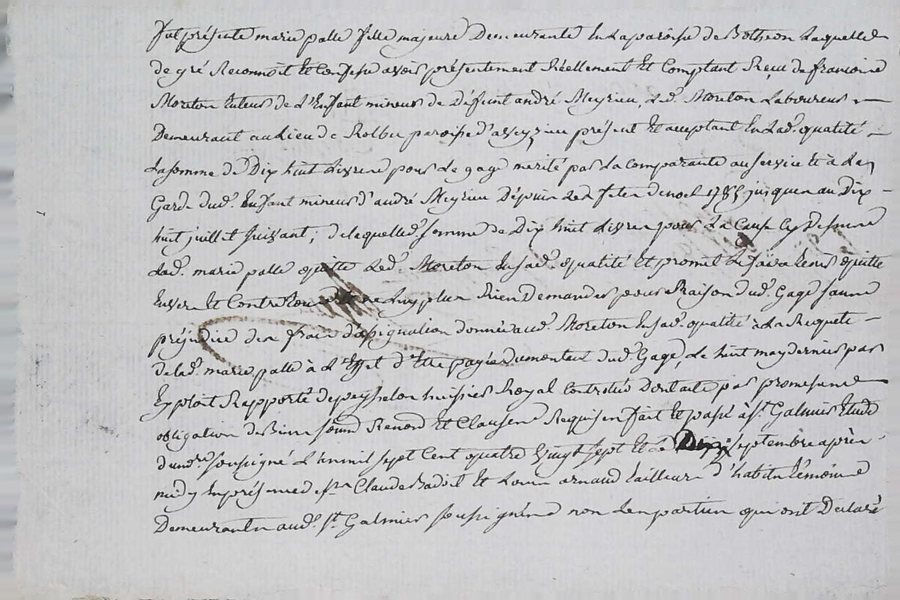 fut présente marie palle fille majeure Demeurante En La paroisse de Botheon Laquelle
de gré Reconnoit Et Confesse avoir présentement Réellement Et Comptant Reçu de françoise
Moreton tuteur de L'Enfant mineur de Défunt andré Meyrieu, Led. Moreton Laboureur
Demeurant au Lieu de paroisse d' présent Et acceptant En Lad. qualité
La somme de Dix huit Livres pour Le gage mérité par La Comparante au service Et à La
Garde dud. Enfant mineur d'andré Meyrieu Depuis Les fetes de noel 1785 jusques au Dix
huit juillet suivant; de laquelle somme de Dix huit Livres pour La Cause Cy Dessus
Lad. marie palle quitte Led. Moreton En sad. qualité Et promet Le faire tenir quitte
Envers Et Contre tous Luy plus Rien Demander pour Raison dud. Gage sans
préjudice des frais d'assignation donnée aud. Moreton En sad. qualité à La Requete
de lad. marie palle à L'Effet d'Etre payée du montant dud. Gage, Le huit may dernier par
Exploit Rapporté de huissier Royal Controllé par promesses
obligation de Biens soum Renon Et Clauses Requises fait Et passé à St. Galmier Etude
du nore soussigné L'an mil sept Cent quatre Vingt sept Et le septembre après
midy En présence de Sr. Claude Badiol Et Louis arnaud tailleur d'habits témoins
Demeurants aud. St. Galmier soussignés non Les parties qui ont Déclaré